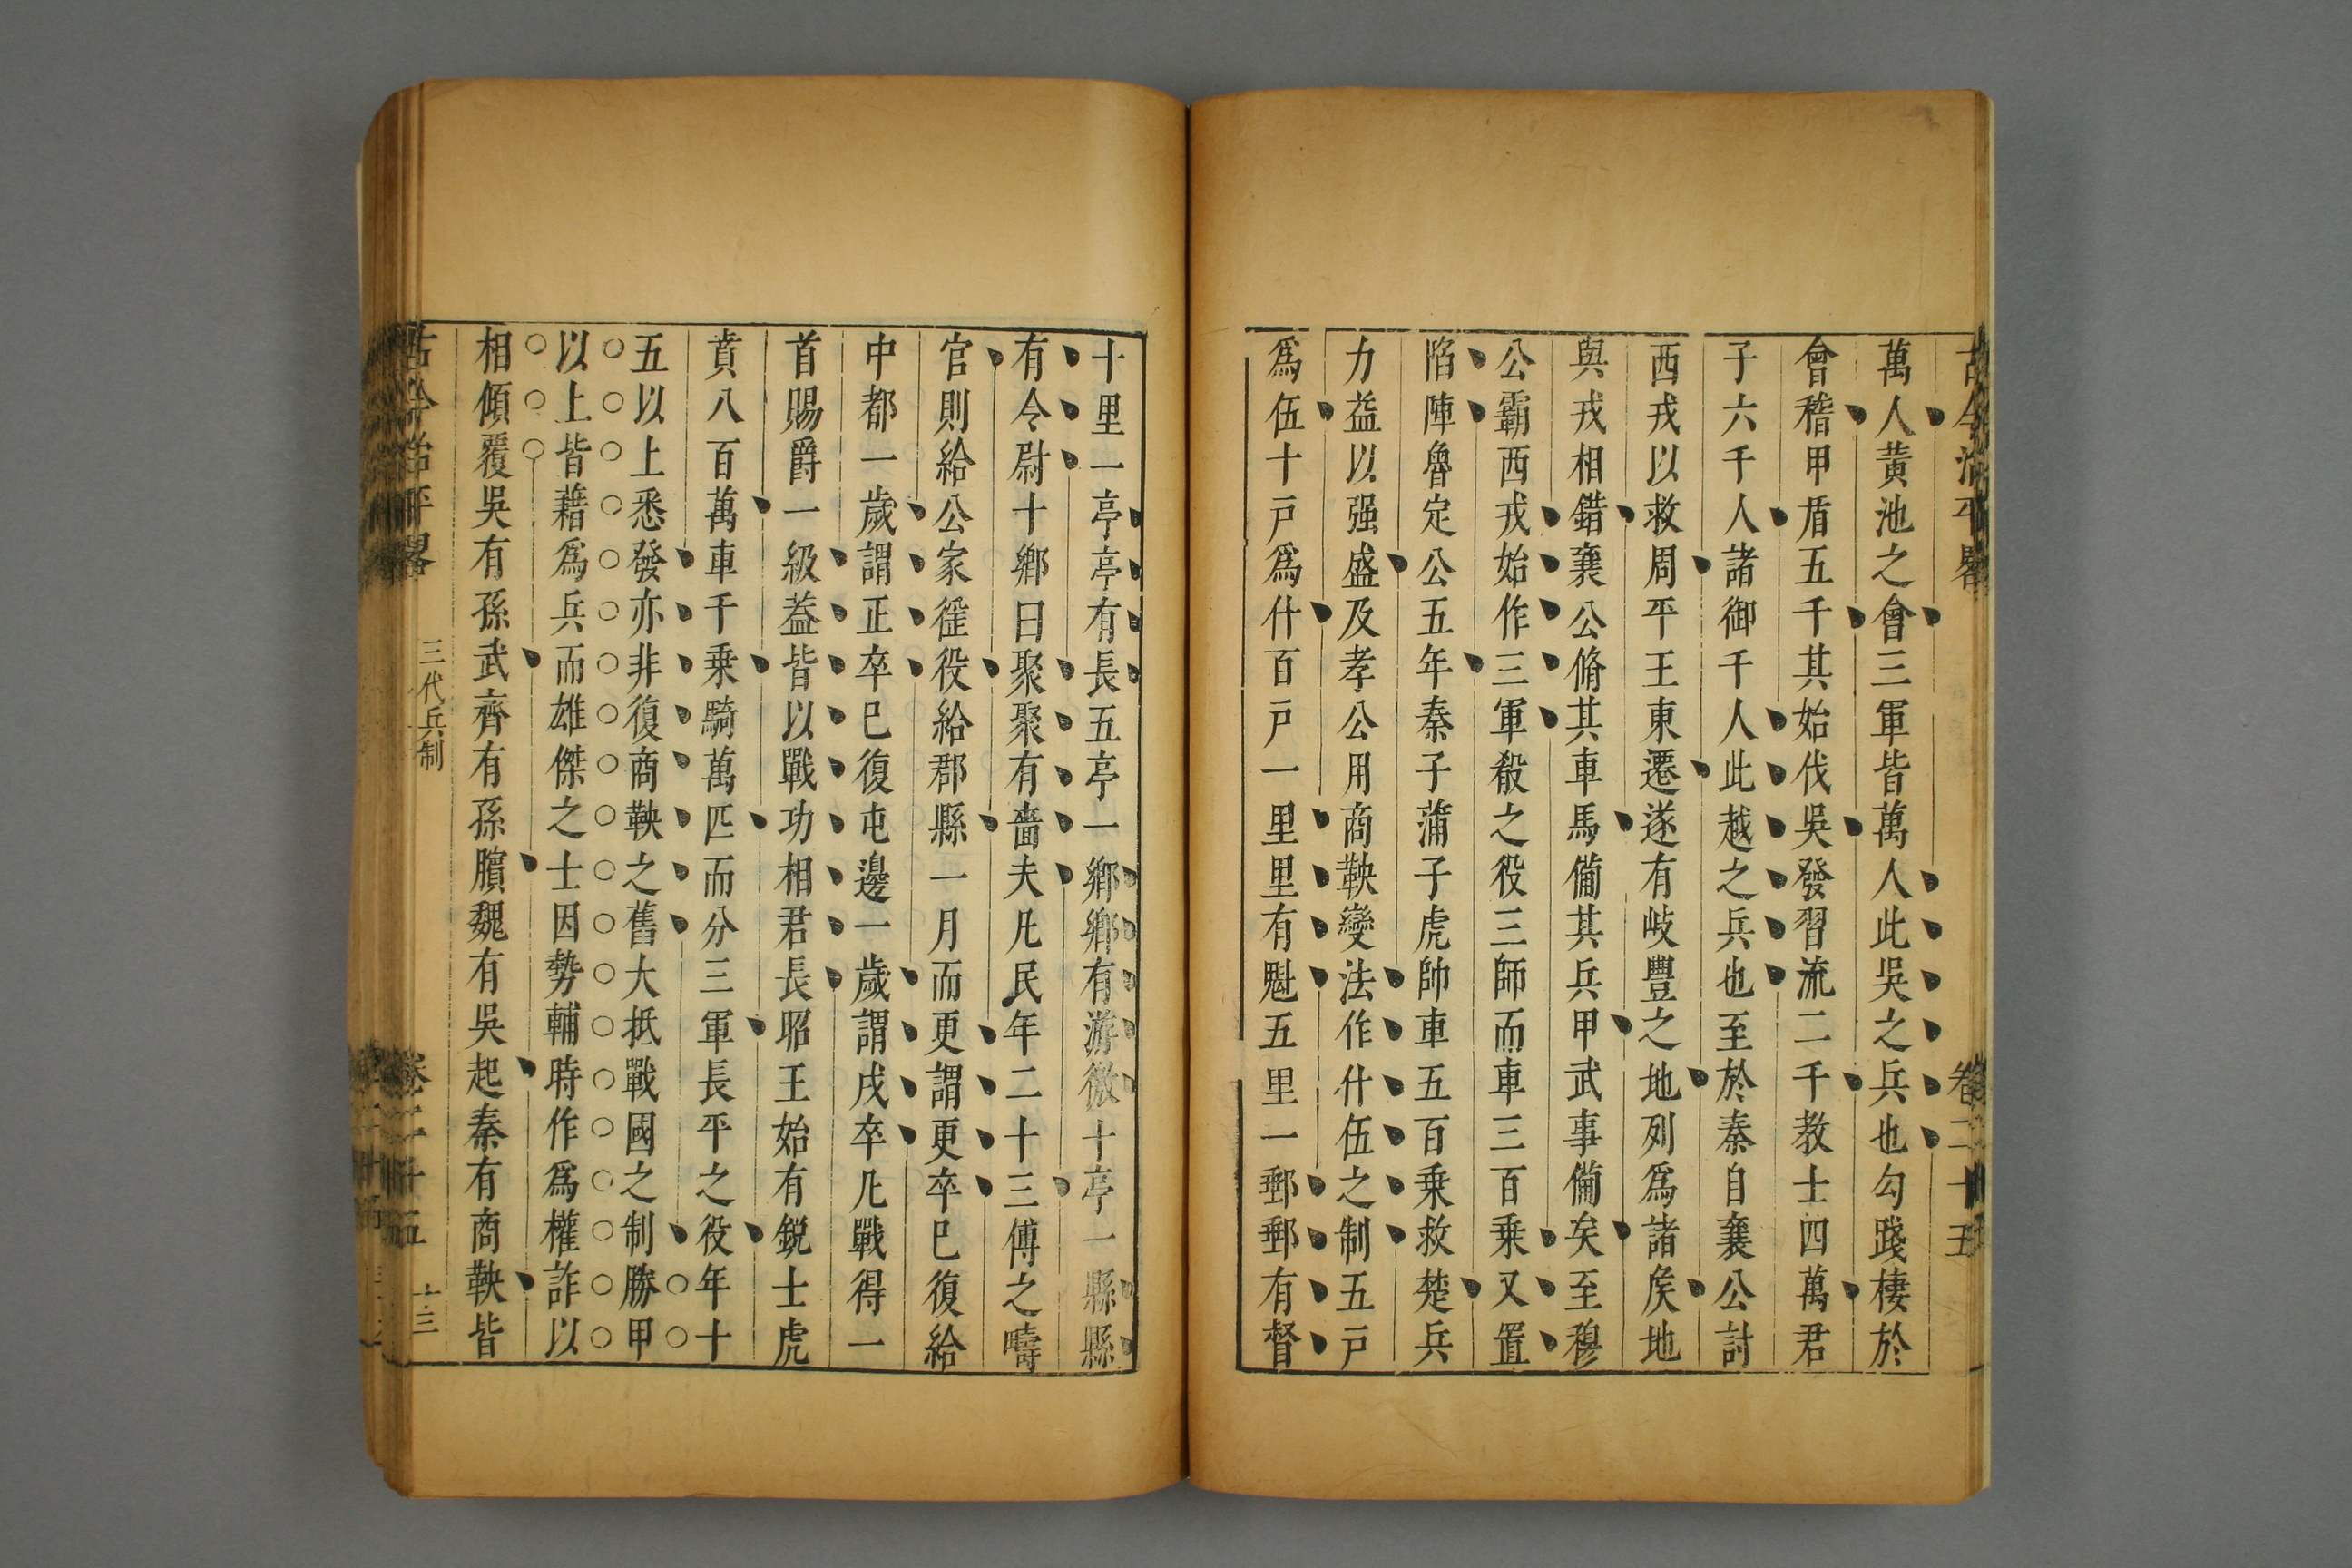 古今治平畧 卷二十五
萬人黃池之會三軍皆萬人此吳之兵也勾踐棲於
會稽甲盾五千其始伐吳發習流二千教士四萬君
子六千人諸御千人此越之兵也至於秦自襄公討
西戎以救周平王東遷遂有岐豐之地列爲諸矦地
與戎相錯襄公脩其車馬僃其兵甲武事僃矣至穆
公霸西戎始作三軍殽之役三師而車三百乘又置
陷陣魯定公五年秦子蒲子虎帥車五百乘救楚兵
力益以强盛及孝公用商鞅變法作什伍之制五戸
爲伍十戸爲什百戸一里里有魁五里一郵郵有督
十里一亭亭有長五亭一鄉鄉有游徼十亭一縣縣
有令尉十鄉曰聚聚有嗇夫凡民年二十三傅之疇
官則給公家徭役給郡縣一月而更謂更卒巳復給
中都一歲謂正卒巳復屯邊一歲謂戍卒凡戰得一
首賜爵一級葢皆以戰功相君長昭王始有銳士虎
賁八百萬車千乘騎萬匹而分三軍長平之役年十
五以上悉發亦非復商鞅之舊大抵戰國之制勝甲
以上皆藉爲兵而雄傑之士因勢輔時作爲權詐以
相傾覆吳有孫武齊有孫臏魏有吳起秦有商鞅皆
古今治平畧 三代兵制 卷二十五 十三